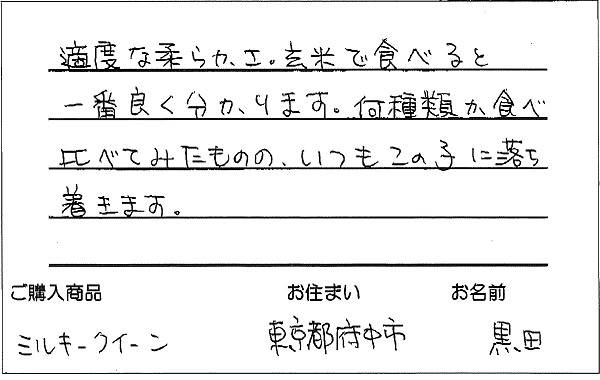 適度な柔らかさ。玄米で食べると
一番良く分かります。何種類か食べ
比べてみたものの、いつもこの子に落ち
着きます。
ご購入商品 お住まい お名前
ミルキークイーン 東京都府中市 黒田